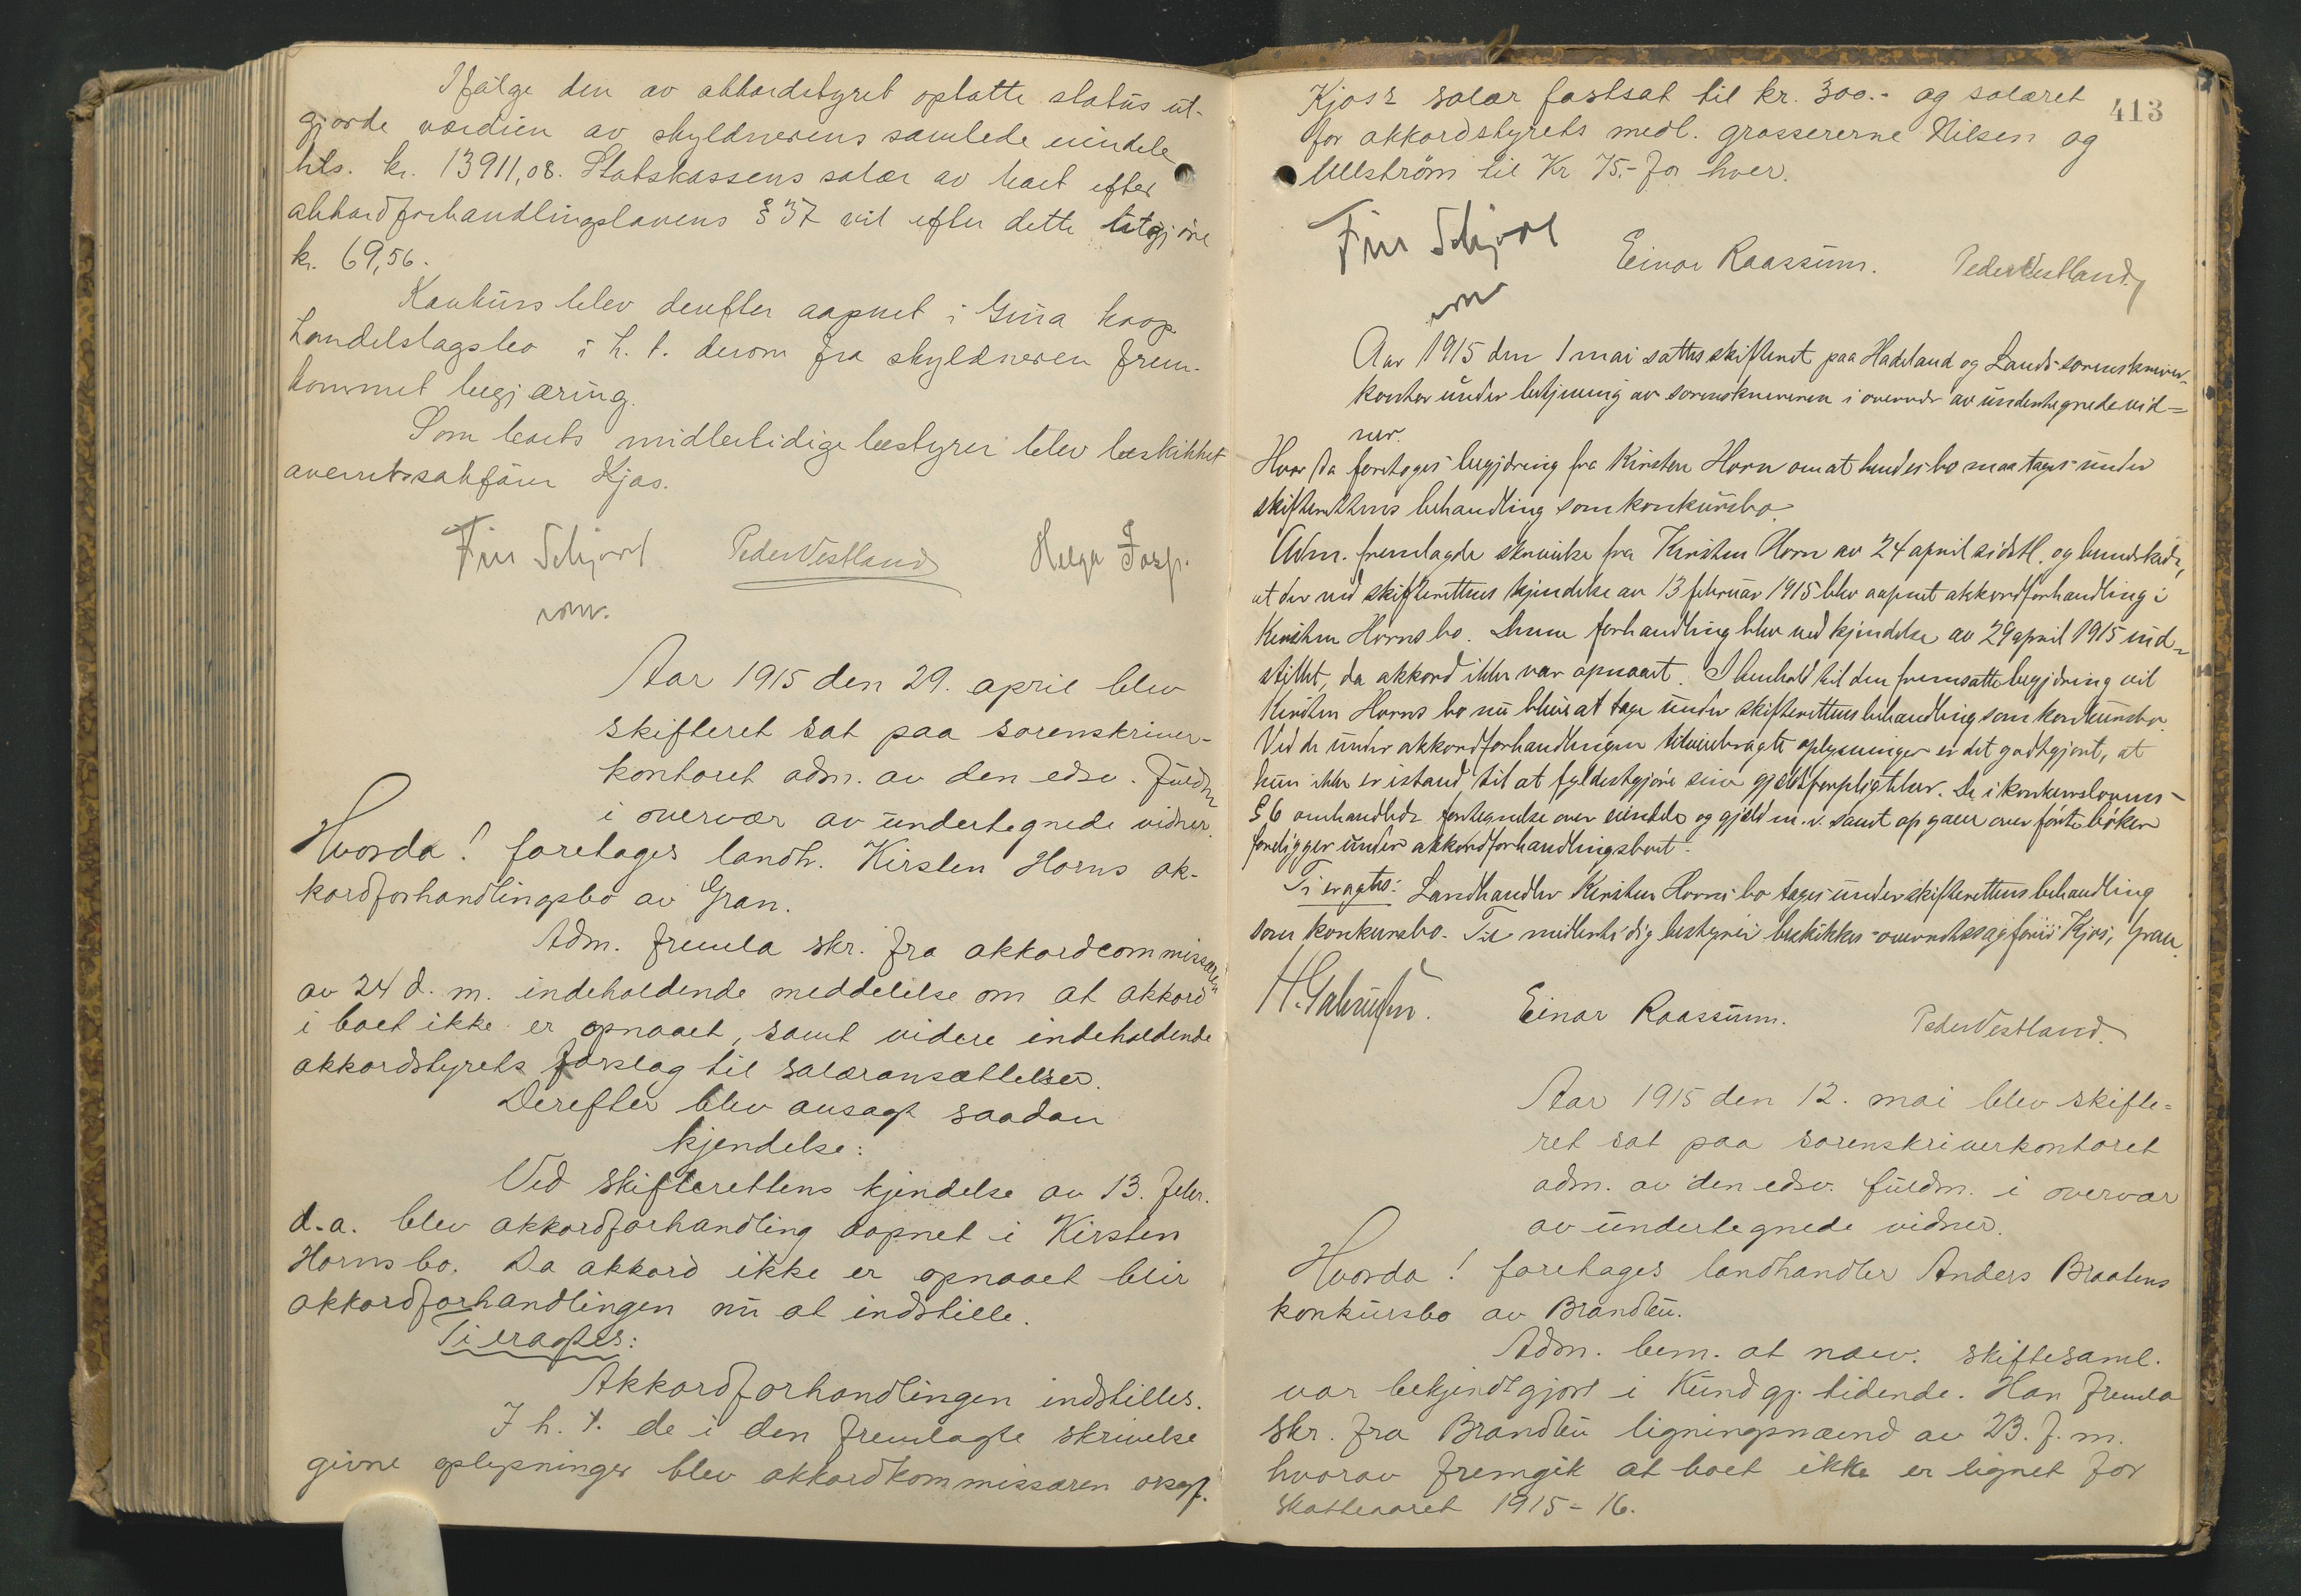 Ifølge den av akkordstyret optatte status ut-
gjorde værdien av skyldnerens samlede eiendele
hts. kr. 13911,08. Statskassens salær av boet efter
akkordforhandlingslovens § 37 vil efter dette utgjøre
kr. 69,56.
Konkurs blev derefter aapnet i Grua koop.
handelslagsbo i h. t. derom fra skyldneren frem-
kommet begjæring.
Som boets midlertidige bestyrer blev beskikket
overretssakfører Kjos.
Finn Schjøll Peder Vestland Helga Josp.
Aar 1915 den 29. april blev
skifteret sat paa sorenskriver-
kontoret adm. av den edsv. fuldm
i overvær av undertegnede vidner.
Hvorda! foretages landh. Kirsten Horns ak-
kordforhandlingsbo av Gran.
Adm. fremla skr. fra akkordcommissæren
av 24 d. m. indeholdende meddelelse om at akkord
i boet ikke er opnaaet, samt videre indeholdende
akkordstyrets forslag til salæransættelser.
Derefter blev avsagt saadan
kjendelse:
Ved skifterettens kjendelse av 13. febr.
d.a. blev akkordforhandling aapnet i Kirsten
Horns bo. Da akkord ikke er opnaaet blir
akkordforhandlingen nu at indstille.
Ti eragtes:
Akkordforhandlingen indstilles.
I h. t. de i den fremlagte skrivelse
givne oplysninger blev akkordkommissæren orsagf.
413
Kjos's salær fastsat til kr. 300.- og salæret
for akkordstyrets medl. grossererne Nilsen og
Ullström til Kr 75.- for hver.
Finn Schjøll
Einar Raassum. Peder Vestland
Aar 1915 den 1 mai sattes skifteret paa Hadeland og Lands sorenskriver-
kontor under betjening av sorenskriveren i overvær av undertegnede vid=
ner.
Hvor da foretoges begjæring fra Kirsten Horn om at hendes bo maa tages under
skifterettens behandling som konkursbo.
Adm. fremlagde skrivelse fra Kirsten Horn av 24 april sidstl. og bemerkede,
at der ved skifterettens kjendelse av 13 februar 1915 blev aapnet akkordforhandling i
Kirsten Horns bo. Denne forhandling blev ved kjendelse av 29 april 1915 ind-
stillet, da akkord ikke var opnaaet. I henhold til den fremsatte begjæring vil
Kirsten Horns bo nu blive at tage under skifterettens behandling som konkursbo.
Ved de under akkordforhandlingen tilveiebragte oplysninger er det godtgjort, at
hun ikke er istand til at fyldestgjøre sine gjældsforpligtelser. De i konkurslovens
§ 6 omhandlede fortegnelse over eiendele og gjæld m. v. samt opgave over førte bøker
foreligger under akkordforhandlingsboet.
Ti eragtes: Landhandler Kirsten Horns bo tages under skifterettens behandling
som konkursbo. Til midlertidig bestyrer beskikkes overretssagfører Kjos, Gran.
Einar Raassum. Peder Vestland.
Aar 1915 den 12. mai blev skifte=
ret sat paa sorenskriverkontoret
adm. av den edsv. fuldm. i overvær
av undertegnede vidner.
Hvorda! foretages landhandler Anders Braatens
konkursbo av Brandbu.
Adm. bem. at næv. skiftesaml.
var bekjendtgjort i Kundgj. tidende. Han fremla
skr. fra Brandbu ligningsnævnd av 23. f. m.
hvorav fremgik at boet ikke er lignet for
skatteaaret 1915-16.